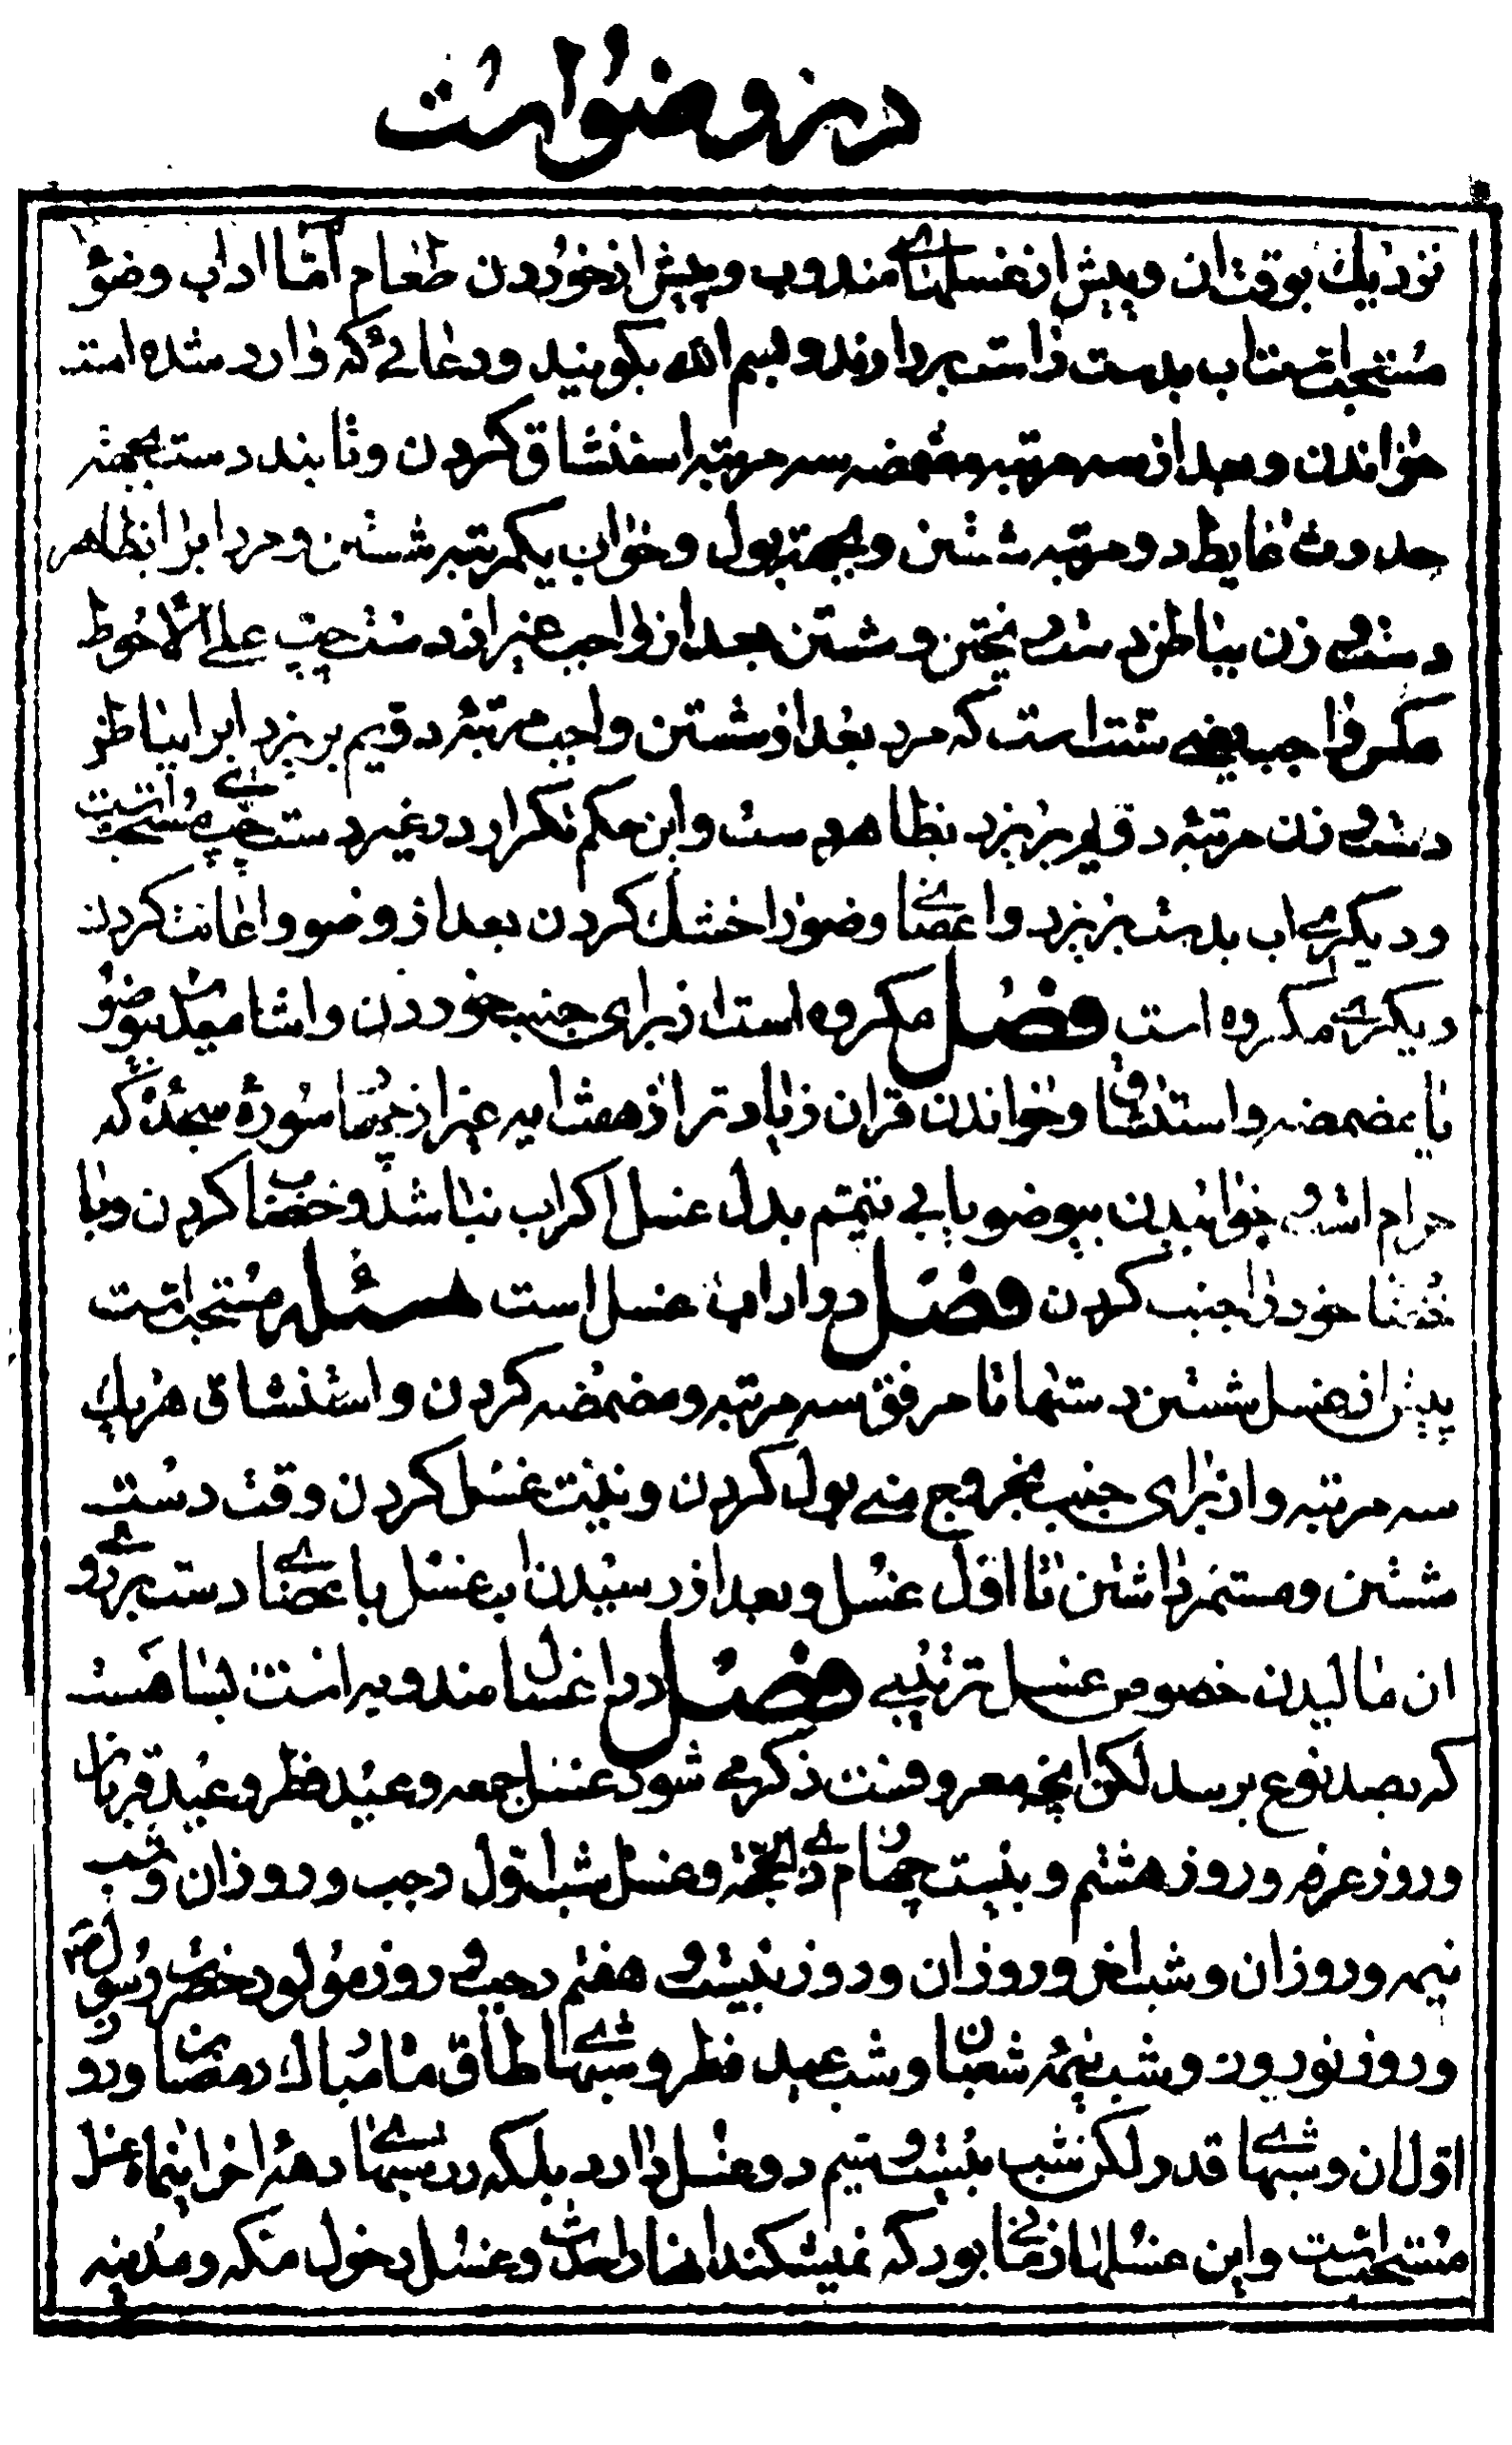 در وضو است
نزدیك بوقت ان وپیش از غسلهاے مندوب وپیش از خوردن طعام امّا اداب وضو
مستحب است اب بدست راست بردارند وبسم الله بكویند ودعائے كه وارد شده است
خواندن وبعد از سه مرتبه مضمضه سه مرتبه استنشاق كردن وتا بند دست بجهت
حدوث غایط دو مرتبه شستن وبجهت بول وخواب یكمرتبه شستن ومرد ابرا بظاهر
دست وزن بباطن دست ریختن وشستن بعد از واجب غیر از دست چپ علے الاحوط
مكرر واجب یعنے سنت است كه مرد بعد از شستن واجب مرتبه دویم بریزد ابرا بباطن
دست وزن مرتبه دویم بریزد بظاهر دست واین حكم تكرار در غیر دست چپ مستحب است
ودیكرے اب بدست بریزد واعضاے وضو را خشك كردن بعد از وضو واعانت كردن
دیكرے مكروه است فصل مكروه است از برای جنب خوردن واشامیدن بیوضو
یا مضمضه واستنشاق وخواندن قران زیاد تر از هفت ایه غیر از چهار سوره سجده كه
حرام است وخوابیدن بیوضو یا بی تیمم بدل غسل اكر اب نباشد وخضاب كردن ویا
خضاب خود را جنب كردن فصل در اداب غسل است مسئله مستحب است
پیش از غسل شستن دستها تا مرفق سه مرتبه ومضمضه كردن واستنشاق هر یك
سه مرتبه واز برای جنب بخروج منے بول كردن ونیت غسل كردن وقت دست
شستن ومستمر داشتن تا اول غسل وبعد از رسیدن اب غسل باعضاے دست برروے
ان مالیدن خصوص غسل ترتیبے فصل در اغسال مندوبه است بسا هست
كه بصد نوع برسد لكن انچه معروفست ذكر مے شود غسل جمعه وعید فطر وعید قربان
وروز عرفه وروز هشتم وبیست چهارم ذے الحجّه وغسل شب اوّل رجب وروز ان وشب
نیمه وروز ان وشب اخر وروز ان وروز بیست و هفتم رجب و روز مولود حضرت رسول ص
وروز نوروز وشب نیمه شعبان وشب عید فطر وشبهاے طاق ماه مبارك رمضان وروز
اوّل ان وشبهاے قدر لكن شب بیست وسیم دو غسل دارد بلكه در شبهاے دهه اخر اینماه غسل
مستحب است واین غسلها زمانی بود كه نمیشكند انها را حدث وغسل دخول مكه ومدینه